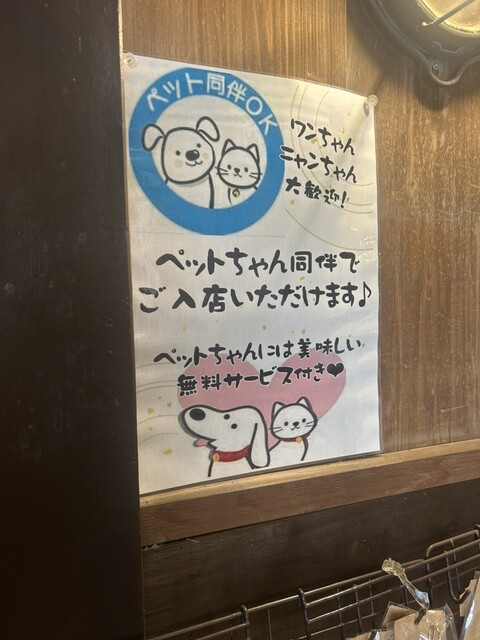 ペット同伴OK
ワンちゃん
ニャンちゃん
大歓迎!
ペットちゃん同伴で
ご入店いただけます♪
ペットちゃんには美味しい
無料サービス付き♥